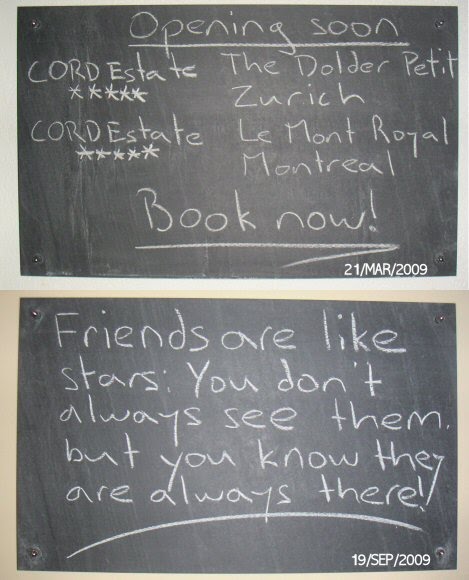 Opening soon
CORD Estate The Dolder Petit
***** Zurich
CORD Estate Le Mont Royal
***** Montreal
Book now!
21/MAR/2009
Friends are like
stars: You don't
always see them,
but you know they
are always there!
19/SEP/2009